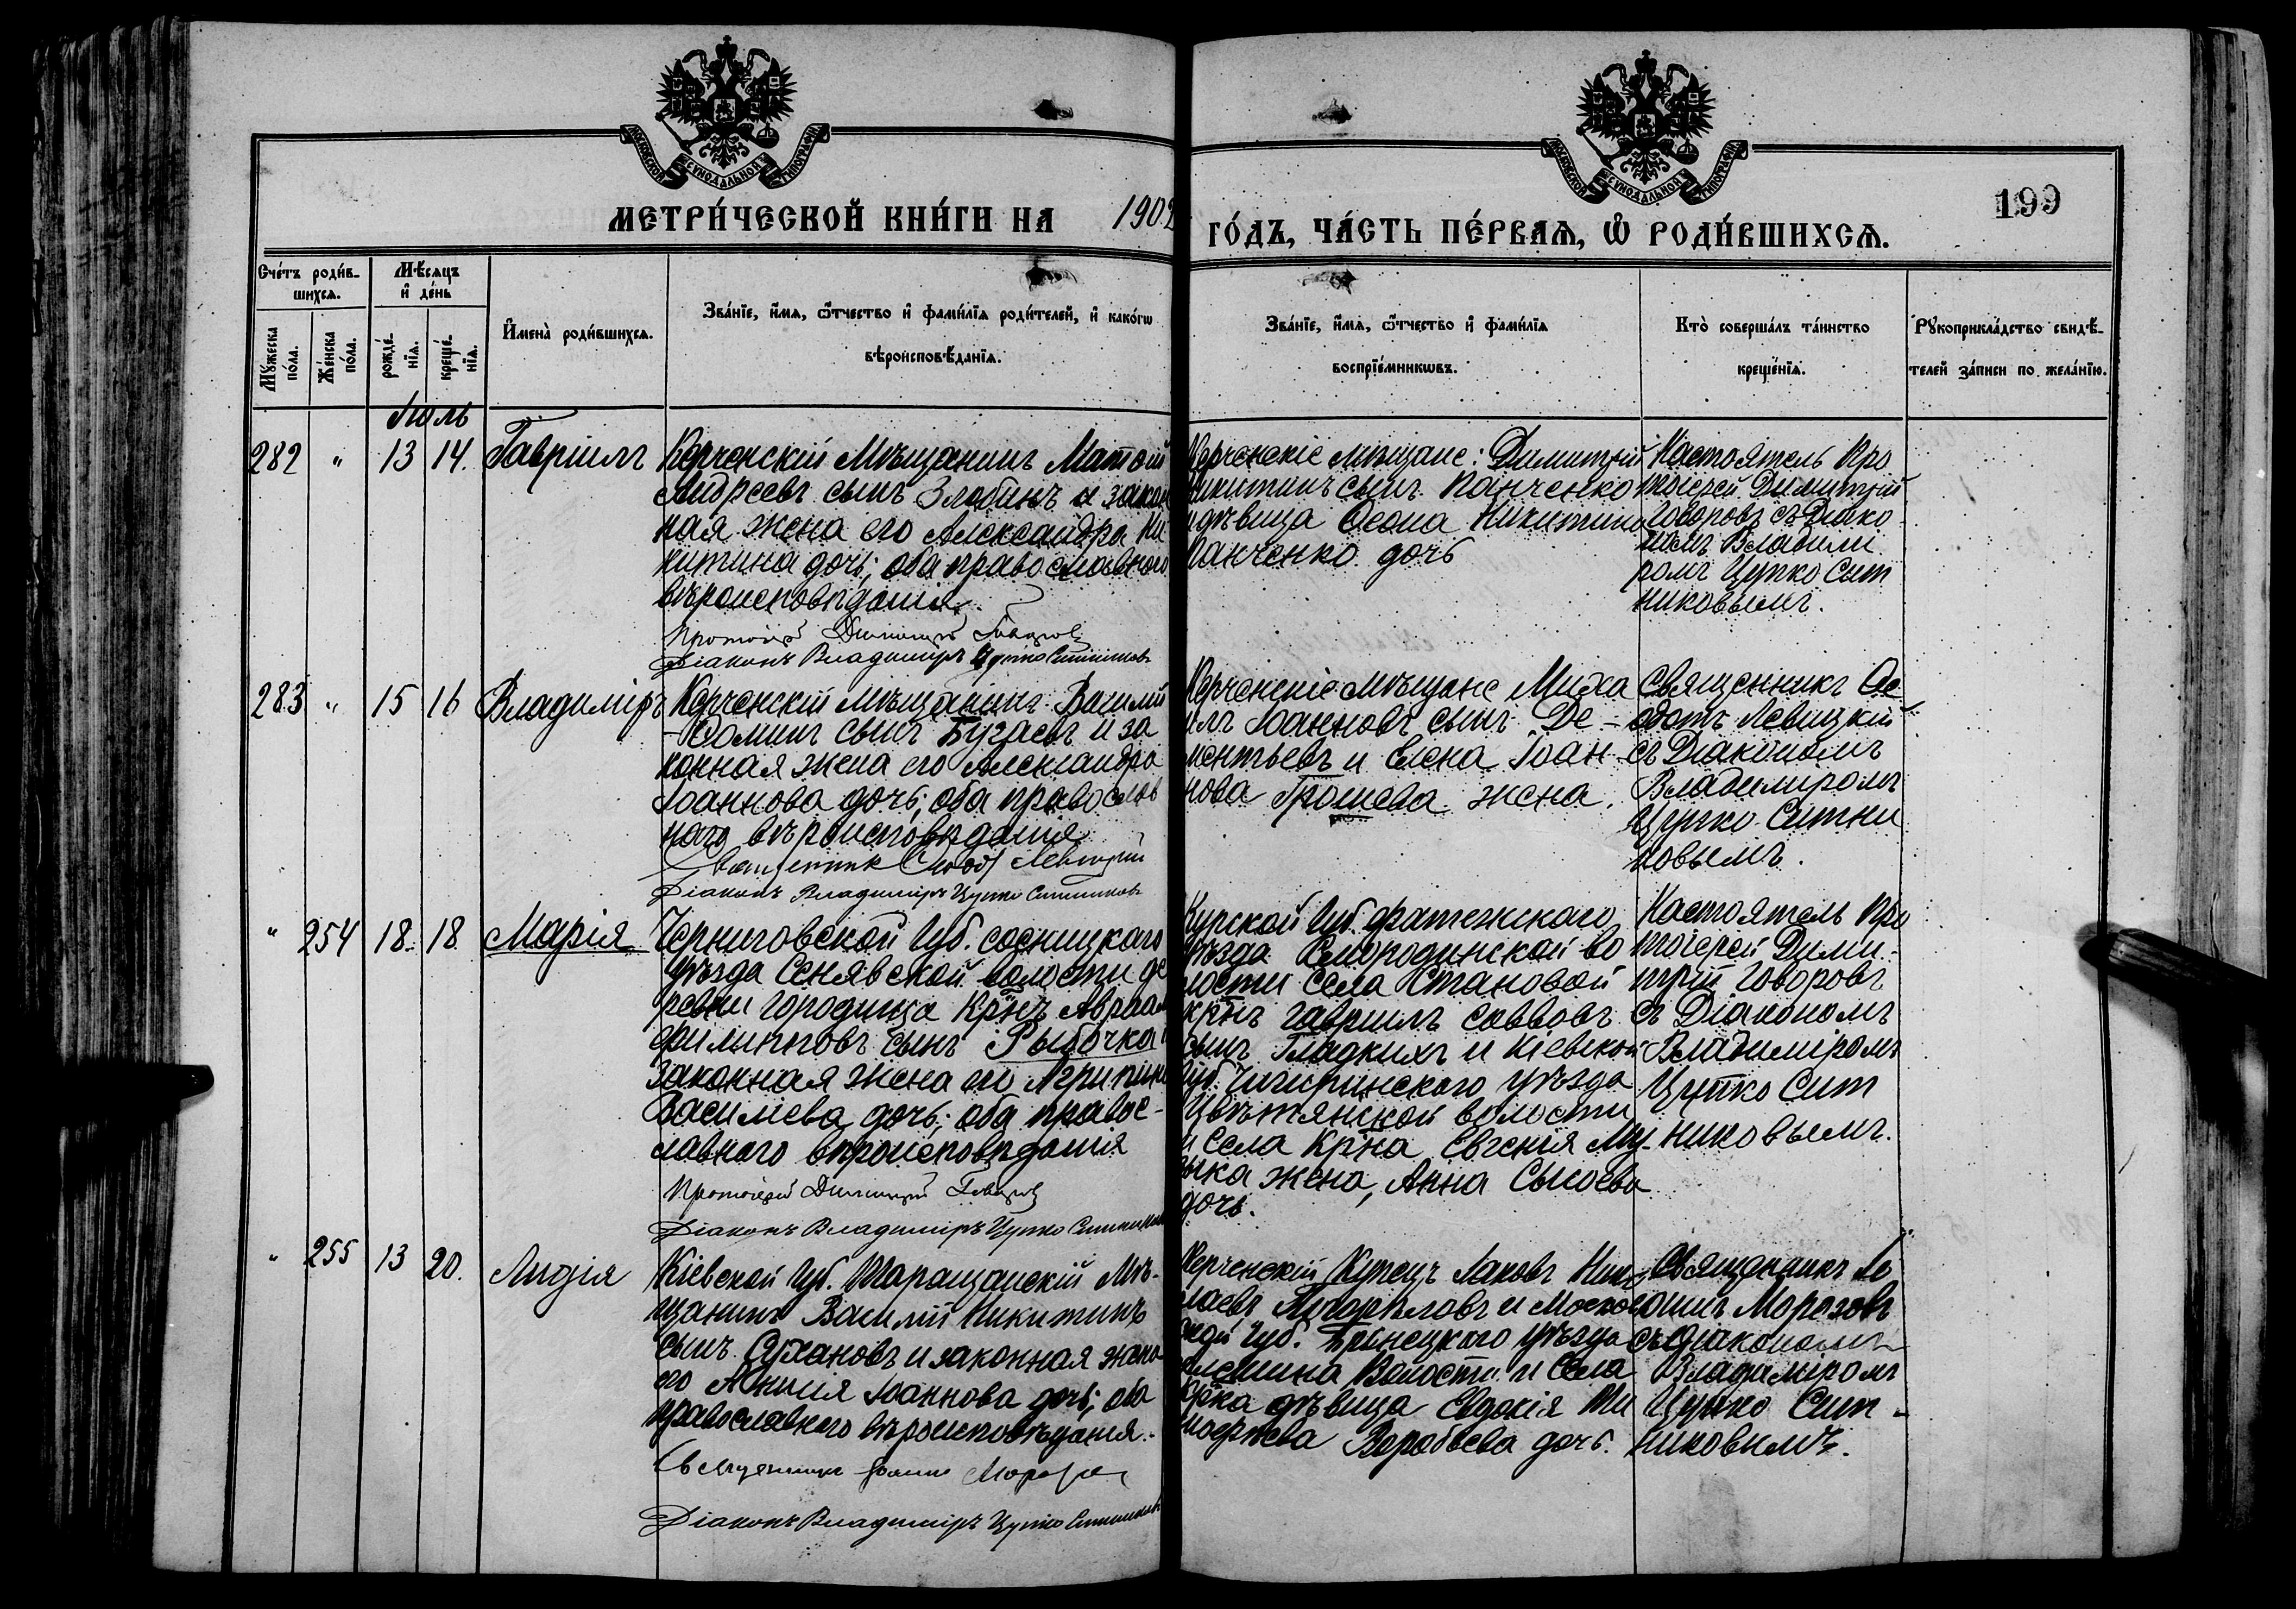 МОСКОВСКОЙ СѴНОДАЛЬНОЙ ТИПОГРАФІИ
МОСКОВСКОЙ СѴНОДАЛЬНОЙ ТИПОГРАФІИ
МЕТРИ́ЧЕСКОЙ КНИ́ГИ НА 1902
ГО́ДЪ, ЧА́СТЬ ПЕ́РВАѦ, Ѡ҆ РОДИ́ВШИХСѦ.
199
Сче́тъ роди́в-
шихсѧ.
Мѣ́сѧцъ
и҆ де́нь
Мꙋ́жеска
по́ла.
Же́нска
по́ла.
рожде́-
нїѧ.
креще́-
нїѧ.
И҆мена̀ роди́вшихсѧ.
Зва́нїе, и҆́мѧ, ѻ҆́тчество и҆ фами́лїѧ роди́телей, и҆ како́гѡ
вѣроисповѣ́данїѧ.
Зва́нїе, и҆́мѧ, ѻ҆́тчество и҆ фами́лїѧ
воспрїе́мникѡвъ.
Кто̀ соверша́лъ та́инство
креще́нїѧ.
Рꙋкоприкла́дство свидѣ́-
телей за́писи по жела́нїю.
Іюль
282 " 13 14. Гавріилъ
Керченскій Мѣщанинъ Матѳій
Андреевъ сынъ Злобинъ и закон
ная жена его Александра Ни
китина дочь; оба православнаго
вѣроисповѣданія.
Протоіерей Димитрій Говоровъ
Діаконъ Владиміръ Цупко Ситниковъ
Керченскіе мѣщане: Димитрій
Никитинъ сынъ Панченко
и дѣвица Ѳеона Никитина
Панченко дочь
Настоятель Про
тоіерей Димитрій
Говоровъ съ Діако
номъ Владими
ромъ Цупко Сит
никовымъ.
283 " 15 16 Владиміръ
Керченскій мѣщанинъ Василій
Ѳоминъ сынъ Бугаевъ и за
конная жена его Александра
Іоаннова дочь; оба правосла
наго вѣроисповѣданія
Священникъ Ѳеодотъ Левицкій
Діаконъ Владиміръ Цупко Ситниковъ
Керченскіе мѣщане Миха
илъ Іоанновъ сынъ Де-
ментьевъ и Елена Іоан
нова Грошева жена.
Священникъ Ѳе
одотъ Левицкій
съ Діакономъ
Владимиромъ
Цупко Ситни
ковымъ.
" 254 18. 18 Марія
Черниговской Губ. сосницкаго
уѣзда Сенявской волости де
ревни Городища Крнъ Авраам
филипповъ сынъ Рыбочка и
законная жена его Агрипина
Василіева дочь; оба правос-
лавнаго вѣроисповѣданія
Протоіерей Димитрій Говоровъ
Діаконъ Владиміръ Цупко Ситниковъ
Курской Губ. фатежскаго
уѣзда Смородинской во
лости Села Становой
крнъ Гавріилъ Саввовъ
сынъ Гладкихъ и Кіевской
Губ. Чигиринскаго уѣзда
Цвѣтянской волости
и Села Крна Евгенія Му
зыка жена, Анна Сысоева
дочь.
Настоятель Про
тоіерей Дими-
трій Говоровъ
съ Діакономъ
Владиміромъ
Цупко Сит
никовымъ.
" 255 13 20. Лидія
Кіевской Губ. Таращанскій Мѣ-
щанинъ Василій Никитинъ
сынъ Сухановъ и законная жена
его Ксенія Іоаннова дочь; оба
православнаго вѣроисповѣданія.
Священникъ Іоаннъ Морозовъ
Діаконъ Владиміръ Цупко Ситниковъ
Керченскій Купецъ Іаковъ Нико
лаевъ и Москов
ской Губ. Бронницкаго уѣзда
Волости и Села
дѣвица Евдокія Ти
моѳѣева Воробьева дочь.
Священникъ Іо
аннъ Морозовъ
съ діакономъ
Владиміромъ
Цупко Сит-
никовымъ.